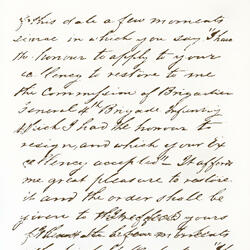 of this date a few moments
since in which you say "I have
the honour to apply to your
ex'lency to restore to me
the Commission of Brigadier
General 4th Brigade Infantry
which I had the honour to
resign, and which your Ex
cellency accepted" It affords
me great pleasure to restore
it and the order shall be
given to yours